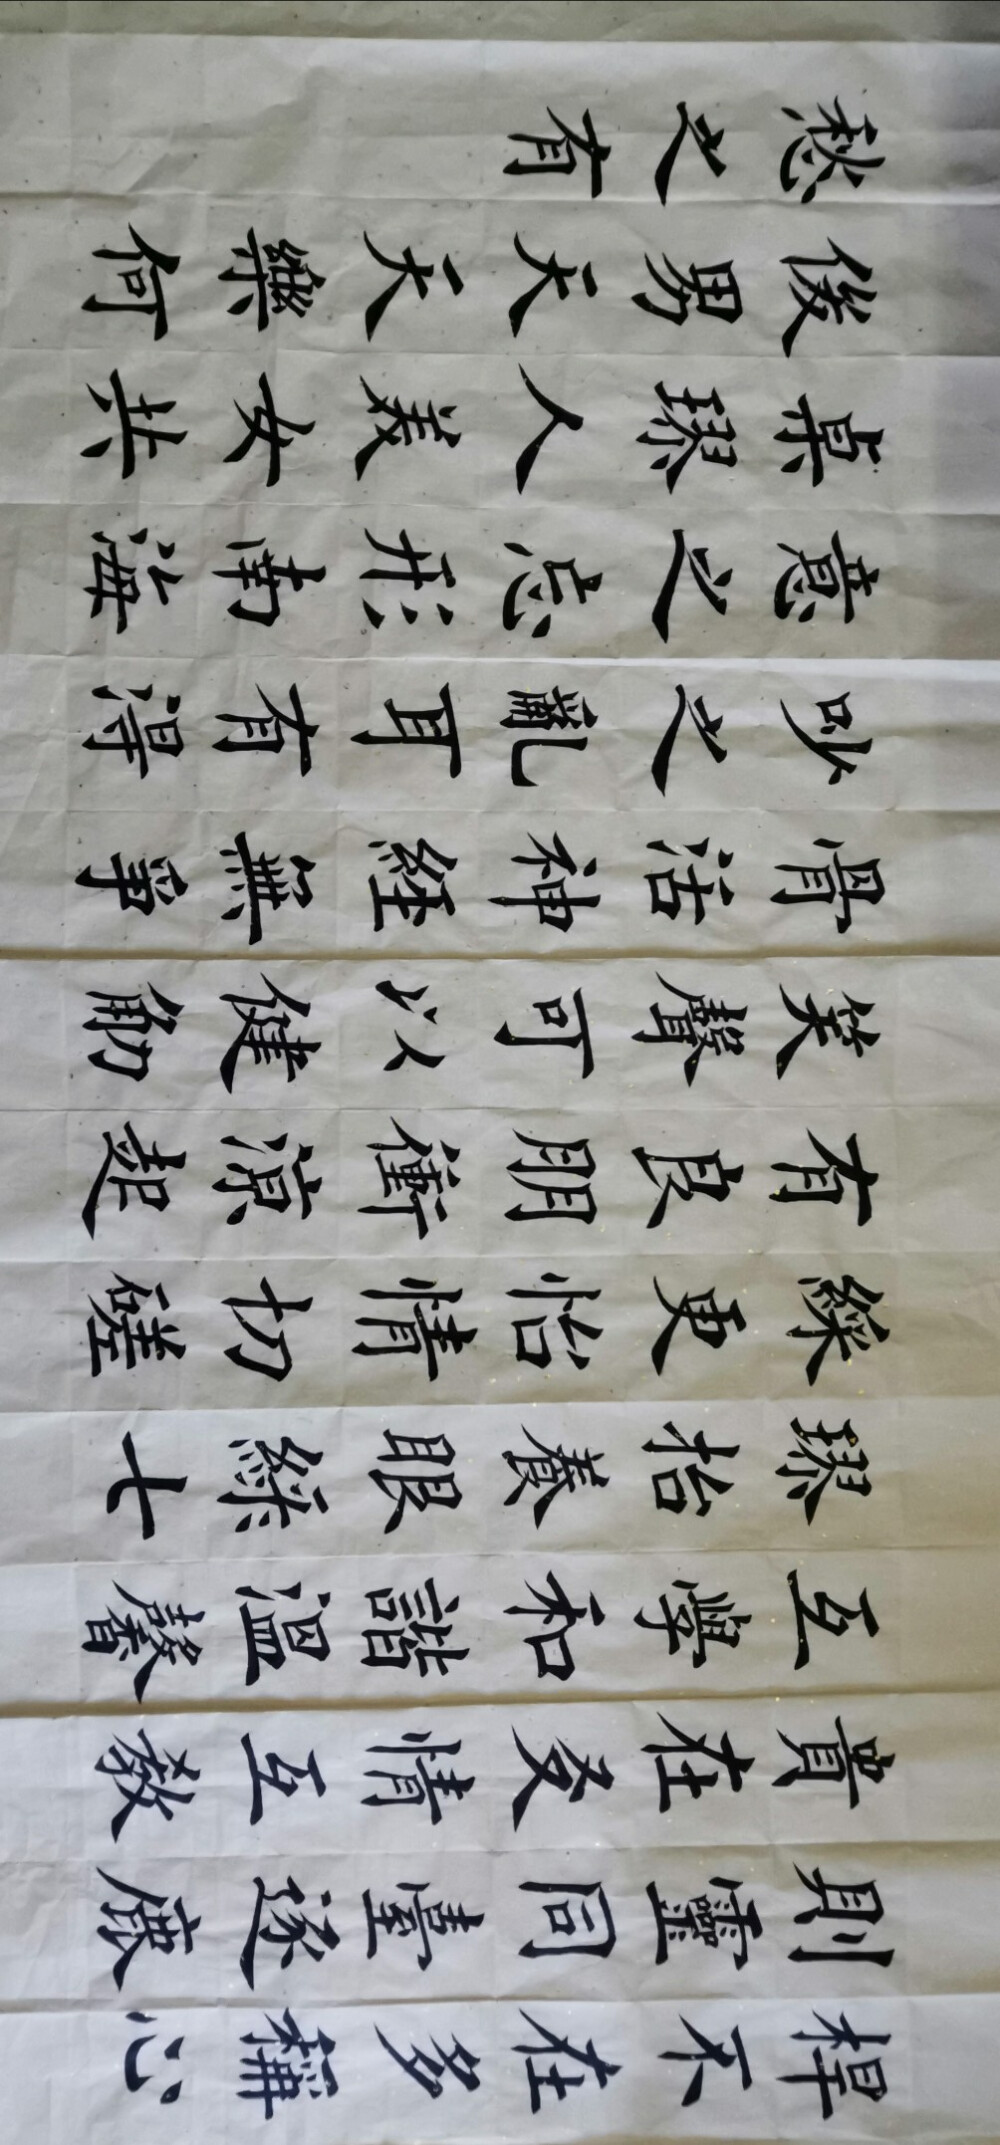 桿不在多稱心
則靈同臺逐鹿
貴在友情互敬
互學和諧溫馨
璆枱養眼綠七
綵更怡情切磋
有良朋衝涼起
笑聲可以健筋
骨活神經無爭
吵之亂耳有得
意之忘形南海
桌璆人美女共
俊男天天樂何
愁之有